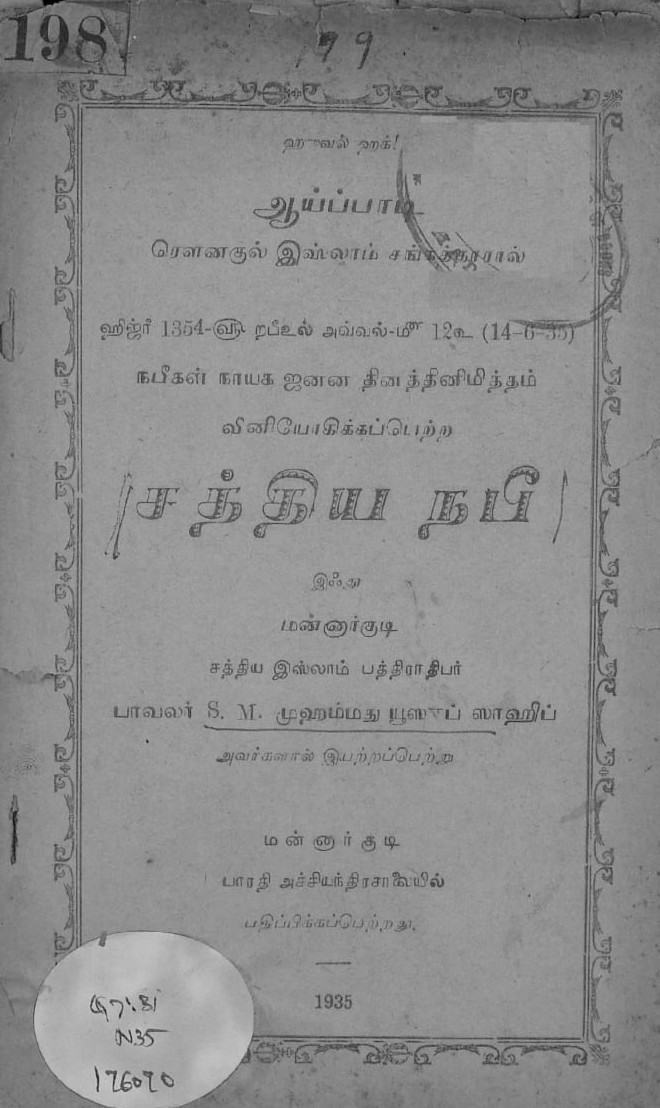 198
179
ஹுவல் ஹக்!
ஆய்ப்பாடி
ரௌனகுல் இஸ்லாம் சங்கத்தாரால்
ஹிஜ்ரீ 1354-௵ றபீஉல் அவ்வல்-௴ 12௨ (14-6-35)
நபீகள் நாயக ஜனன தினத்தினிமித்தம்
வினியோகிக்கப்பெற்ற
சத்திய நபீ
இஃது
மன்னார்குடி
சத்திய இஸ்லாம் பத்திராதிபர்
பாவலர் S. M. முஹம்மது யூஸுப் ஸாஹிப்
அவர்களால் இயற்றப்பெற்று
மன்னார்குடி
பாரதி அச்சியந்திரசாலையில்
பதிப்பிக்கப்பெற்றது.
1935
N35
176070